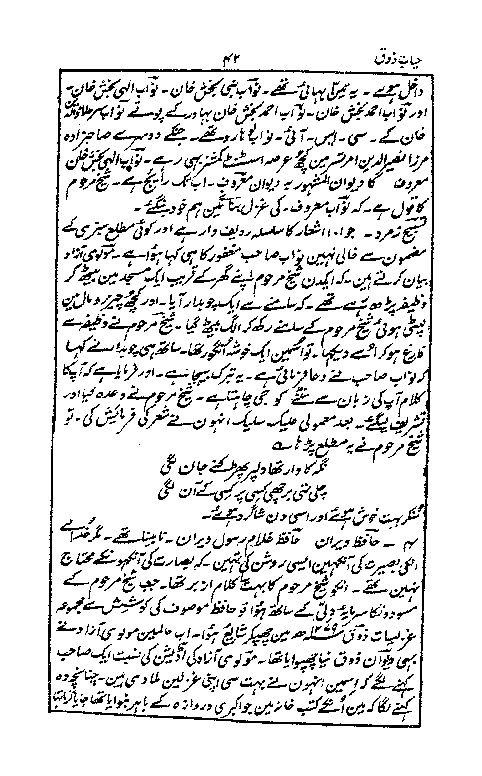 حیات ذوق
۴۲
داخل ہوئے۔ یہ تین بہائی تھے۔ نواب نبی بخش خان۔ نواب الٰہی بخش خان۔
اور نواب احمد بخش خان۔ نواب احمد بخش خان بہادر کے پوتے نواب سر علاؤالدین
خان کے۔ سی۔ ایس۔ آئی۔ نواب لوہارو تھے۔ جنکے دوسرے صاحبزادہ
مرزا نصیرالدین امرتسر مین کچھ عرصہ اسسٹنٹ کمشنر بھی رہے۔ نواب الٰہی بخش خان
معروف کا دیوان المشہور بہ دیوان معروف۔ اب تک رائج ہے۔ شیخ مرحوم
کا قول ہے۔ کہ نواب معروف۔ کی غزل بناتے ہم خود بنگئے۔
تسبیح زمرد۔ جو ۱۰۱ اشعار کا سلسلہ ردیف وار ہے اور کوئی مطلع سبزی کے
مضمون سے خالی نہین نواب صاحب مغفور کا ہی کہا ہوا ہے۔ مولوی آزاد
بیان کرتے ہین۔ کہ ایکدن شیخ مرحوم اپنے گھر کے قریب ایک مسجد مین بیٹھے کر
وظیفہ پڑھ رہے تھے۔ کہ سامنے سے ایک چوبدار آیا۔ اور کچھ چیز رومال مین
لپٹی ہوئی شیخ مرحوم کے سامنے رکھ کر الگ بیٹھ گیا۔ شیخ مرحوم نے وظیفہ سے
فارغ ہو کر اُسے دیکھا۔ تو اُسمین ایک خوشہ انگور تھا۔ ساتھ ہی چوبدار نے کہا
کہ نواب صاحب نے دعا فرمائی ہے۔ یہ تبرک بھیجا ہے۔ اور فرمایا ہے کہ آپکا
کلام آپ کی زبان سے سننے کو جی چاہتا ہے۔ شیخ مرحوم نے وعدہ کیا اور
تشریف لیگئے۔ بعد معمولی علیک سلیک انہون نے شعر کی فرمائش کی۔ تو
شیخ مرحوم نے یہ مطلع پڑھا ؎
نگہ کا وار تھا دلپر پھڑکنے جان لگی
چلی تھی برچھی کسی پر کسی کے آن لگی
سنکر بہت خوش ہوئے اور اسی دن شاگرد ہوئے۔
۴۔ حافظ ویران حافظ غلام رسول ویران۔ نابینا تھے۔ مگر خدا نے
انکی بصیرت کی آنکھین ایسی روشن کی تہین۔ کہ بصارت کی آنکھونکے محتاج
نہین تھے۔ انکو شیخ مرحوم کا بہت کلام ازبر تھا۔ جب شیخ مرحوم کے
مسودونکا سرمایہ دلّی کے ساتھ ہوا تو حافظ موصوف کی کوشش سے مجموعہ
غزلیات ذوق ۱۲۷۹ھ مین چھپکر شائع ہوا۔ اب حال مین مولوی آزاد نے
بھی دیوان ذوق نیا چھپوایا تھا۔ مولوی آزاد کی اڈیشن کی نسبت ایک صاحب
کہنے لگے کہ اسمین انہون نے بہت سی اپنی غزلین ملا دی ہین۔ چنانچہ وہ
کہنے لگا کہ مین اُنکے کتب خانہ مین جو اکبری دروازہ کے باہر بنوایا تھا جایا کرتا تھا